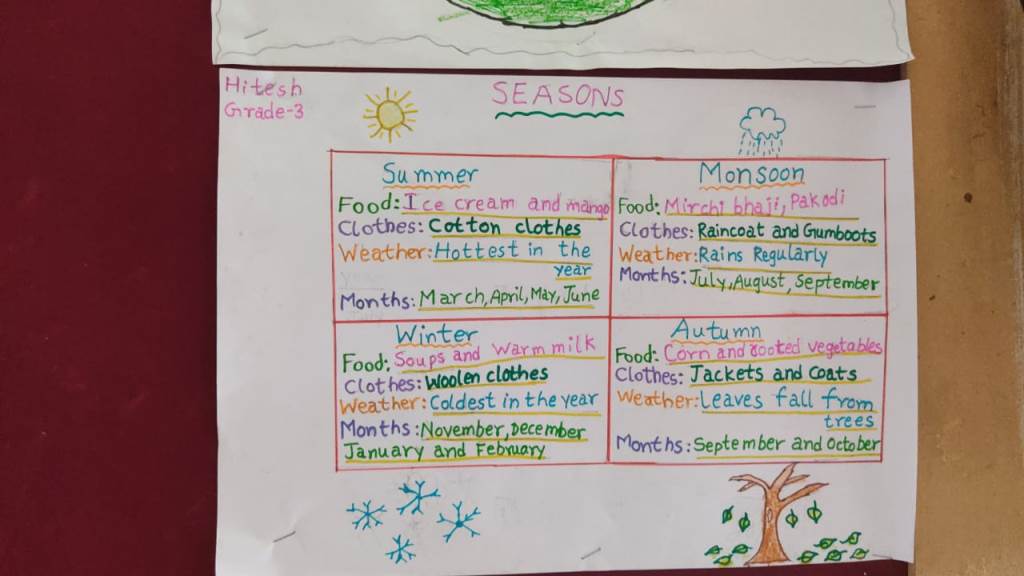 Hitesh
Grade-3
SEASONS
Summer
Food: Ice cream and mango
Clothes: Cotton clothes
Weather: Hottest in the
year
Months: March, April, May, June
Monsoon
Food: Mirchi bhaji, Pakodi
Clothes: Raincoat and Gumboots
Weather: Rains Regularly
Months: July, August, September
Winter
Food: Soups and warm milk
Clothes: Woolen clothes
Weather: Coldest in the year
Months: November, December
January and February
Autumn
Food: Corn and rooted vegetables
Clothes: Jackets and Coats
Weather: Leaves fall from
trees
Months: September and October